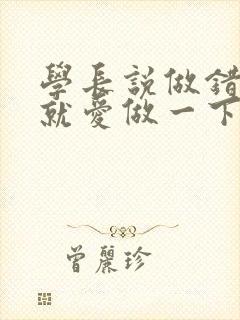 學長説做錯
就愛做一下
曾麗珍